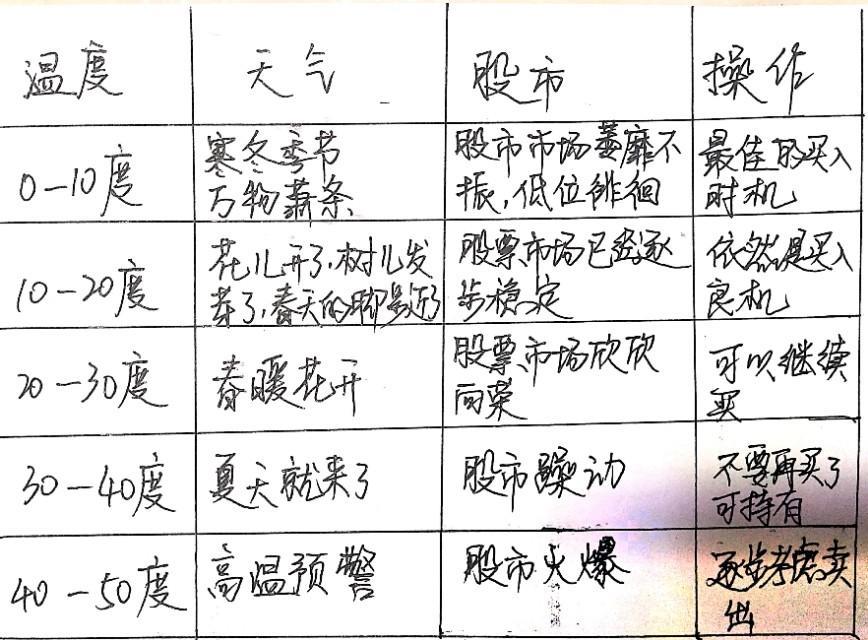 温度 天气 股市 操作
0-10度 寒冬季节 股市市场萎靡不 最佳的买入
万物萧条 振,低位徘徊 时机
10-20度 花儿开了,树儿发 股票市场已经逐 依然是买入
芽了,春天的脚步近了 步稳定 良机
20-30度 春暖花开 股票市场欣欣 可以继续
向荣 买
30-40度 夏天就来了 股市躁动 不要再买了
可持有
40-50度 高温预警 股市火爆 逐步考虑卖
出